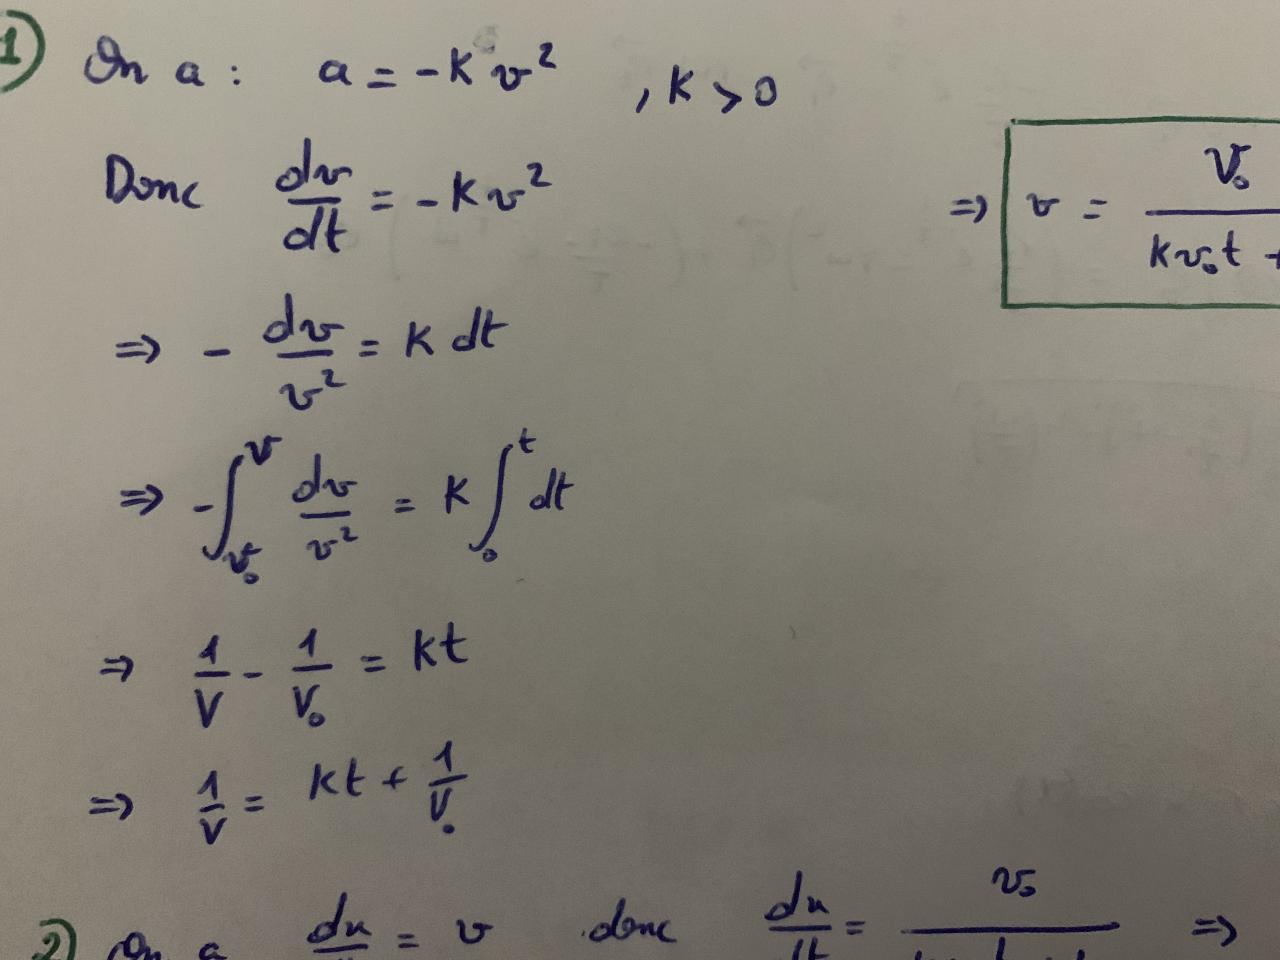 1) On a : a = -K v²  , K > 0
Donc dv/dt = -K v²
⇒ - dv/v² = K dt
⇒ -∫_{v₀}^{v} dv/v² = K ∫_{0}^{t} dt
⇒ 1/V - 1/V₀ = kt
⇒ 1/V = kt + 1/V₀
⇒ v = V₀ / kv₀t +
2) On a dx/ = v donc dx/dt = v₀/ ⇒